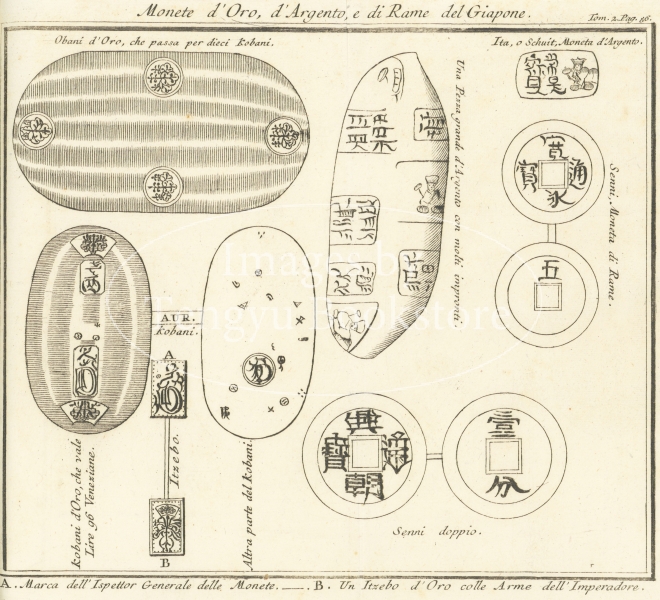 Monete d'Oro, d'Argento, e di Rame del Giapone.
Tom. 2. Pag. 96.
Obani d'Oro, che passa per dieci Kobani.
Ita, o Schuit, Moneta d'Argento.
Una Pezza grande d'Argento con molti impronti
寛永通寳
五
Senni, Moneta di Rame.
AUR.
Kobani.
A
Itzebo.
B
Kobani d'Oro, che vale
Lire 96 Veneziane.
Altra parte del Kobani.
興朝通寶
壹分
Senni doppio.
A. Marca dell'Ispettor Generale delle Monete. B. Un Itzebo d'Oro colle Arme dell'Imperadore.
Images by
Tamgyu Bookstore